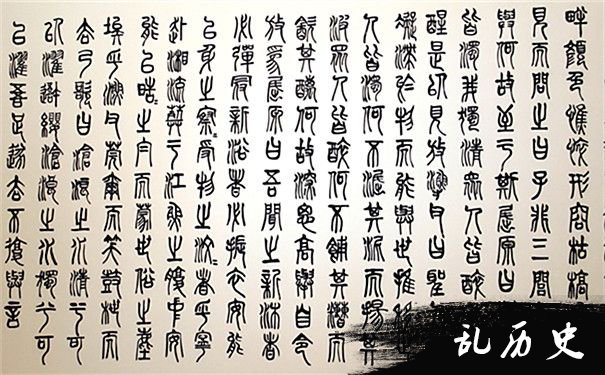 畔顔色憔悴形容枯槁
見而問之曰子非三閭
與何故至于斯屈原曰
皆濁我獨清衆人皆醉
醒是以見放漁父曰聖
凝滯於物而能與世推
人皆濁何不淈其泥而揚其
波衆人皆醉何不餔其糟而
歠其醨何故深思高舉自令
放爲屈原曰吾聞之新沐者
必彈冠新浴者必振衣安能
以身之察〻受物之汶〻者乎寧
赴湘流葬于江魚之腹中安
能以晧〻之白而蒙世俗之塵
埃乎漁父莞爾而笑鼓枻而
去乃歌曰滄浪之水清兮可
以濯吾纓滄浪之水濁兮可
以濯吾足遂去不復與言
乱历史